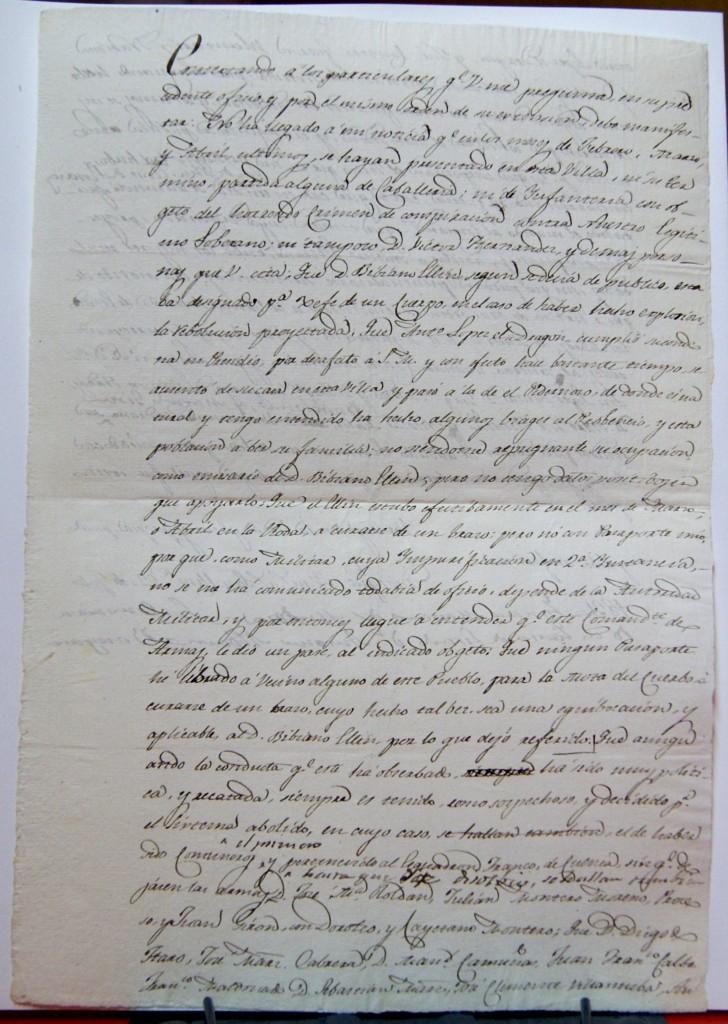 Contestando a los particulares q.e V. me pregunta, en su prece
dente oficio, y por el mismo orden de su extension, debo manifes
tar: No ha llegado a mi noticia q.e en los meses de Febrero, Marzo,
y Abril ultimos, se hayan presentado en esta Villa, ni su ter
mino, partida alguna de Caballeria; ni de Infanteria con ob
geto del horrendo Crimen de conspiracion contra Nuestro Legiti
mo Soberano; ni tampoco D. Victor Hernandez, y demas perso
nas que V. cita; Que D. Bibiano Ellin segun se decia de publico, esta
ba designado p.a Xefe de un Cuerpo, en el caso de haber hecho explosion,
la Revolucion proyectada; Que Ant.o Lopez el Dragon cumplió su conde
na en Presidio, por desafecto a S. M. y con efecto hace bastante tiempo, se
ausentó de su casa en esta Villa, y pasó a la de el Pedernoso, de donde es na
tural y tengo entendido ha hecho, algunos biages al Probencio, y esta
poblacion a ber su familia; no siendome repugnante su ocupacion
como emisario de D. Bibiano Ellin, pero no tengo datos positibos en
que apoyarlo; Que el Ellin estubo efectibamente en el mes de Marzo,
o Abril en la Roda, a curarse de un brazo; pero no con Pasaporte mio,
por que, como Militar, cuya Impurificacion en 2.a Instancia,
no se me há comunicado todabia de oficio, depende de la Autoridad
Militar, y por entonces llegue a entender q.e este Comand.te de
Armas, le dió un pase, al indicado obgeto; Que ningun Pasaporte
hé librado a Vecino alguno de este Pueblo, para la Mota del Cuerbo á
curarse de un brazo, cuyo hecho tal bez sea una equibocacion, y
aplicable, a D. Bibiano Ellin, por lo que dejo referido; Que aunqu
ando la conducta q.e este há obserbado, há sido muy politi
ca, y recatada, siempre es tenido, como sospechoso, y decidido p.r
el Sistema abolido, en cuyo caso, se hallan tambien, el de haber
el primero
sido y perteneciendo al Esquadron Franco, de Cuenca, sin q.e de
jasen las armas D. José M.a Roldan, Julian Montero Moreno,
y Juan Giron, con Doroteo, y Cayetano Montero; Que D. Diego de
Haro, José Mari. Cabrera, D. Man.l Camuñas, Juan Fran.co Calbo
Fran.co D. Sebastian José Clemente Villanueba,